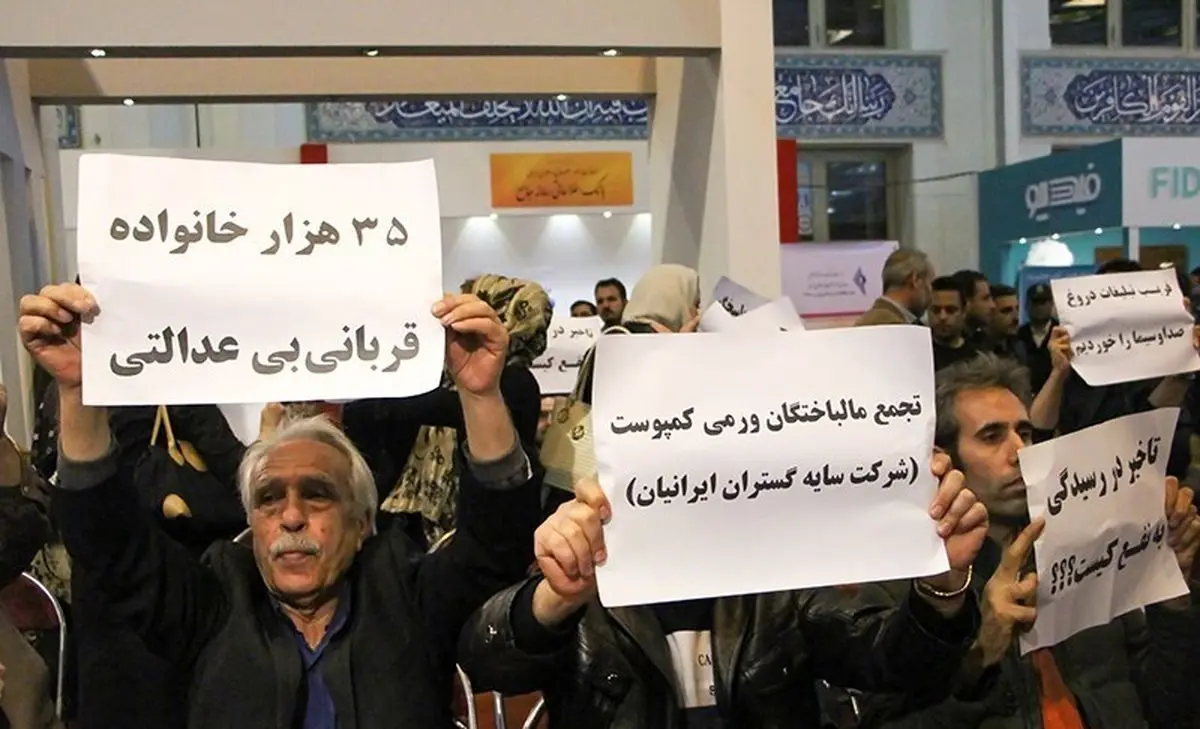 ۳۵ هزار خانواده
قربانی بی عدالتی
تجمع مالباختگان ورمی کمپوست
(شرکت سایه گستران ایرانیان)
تاخیر در رسیدگی
به نفع کیست؟؟؟
فریب تبلیغات دروغ
صداوسیما را خوردیم
تاخیر در
فیدیبو
FID